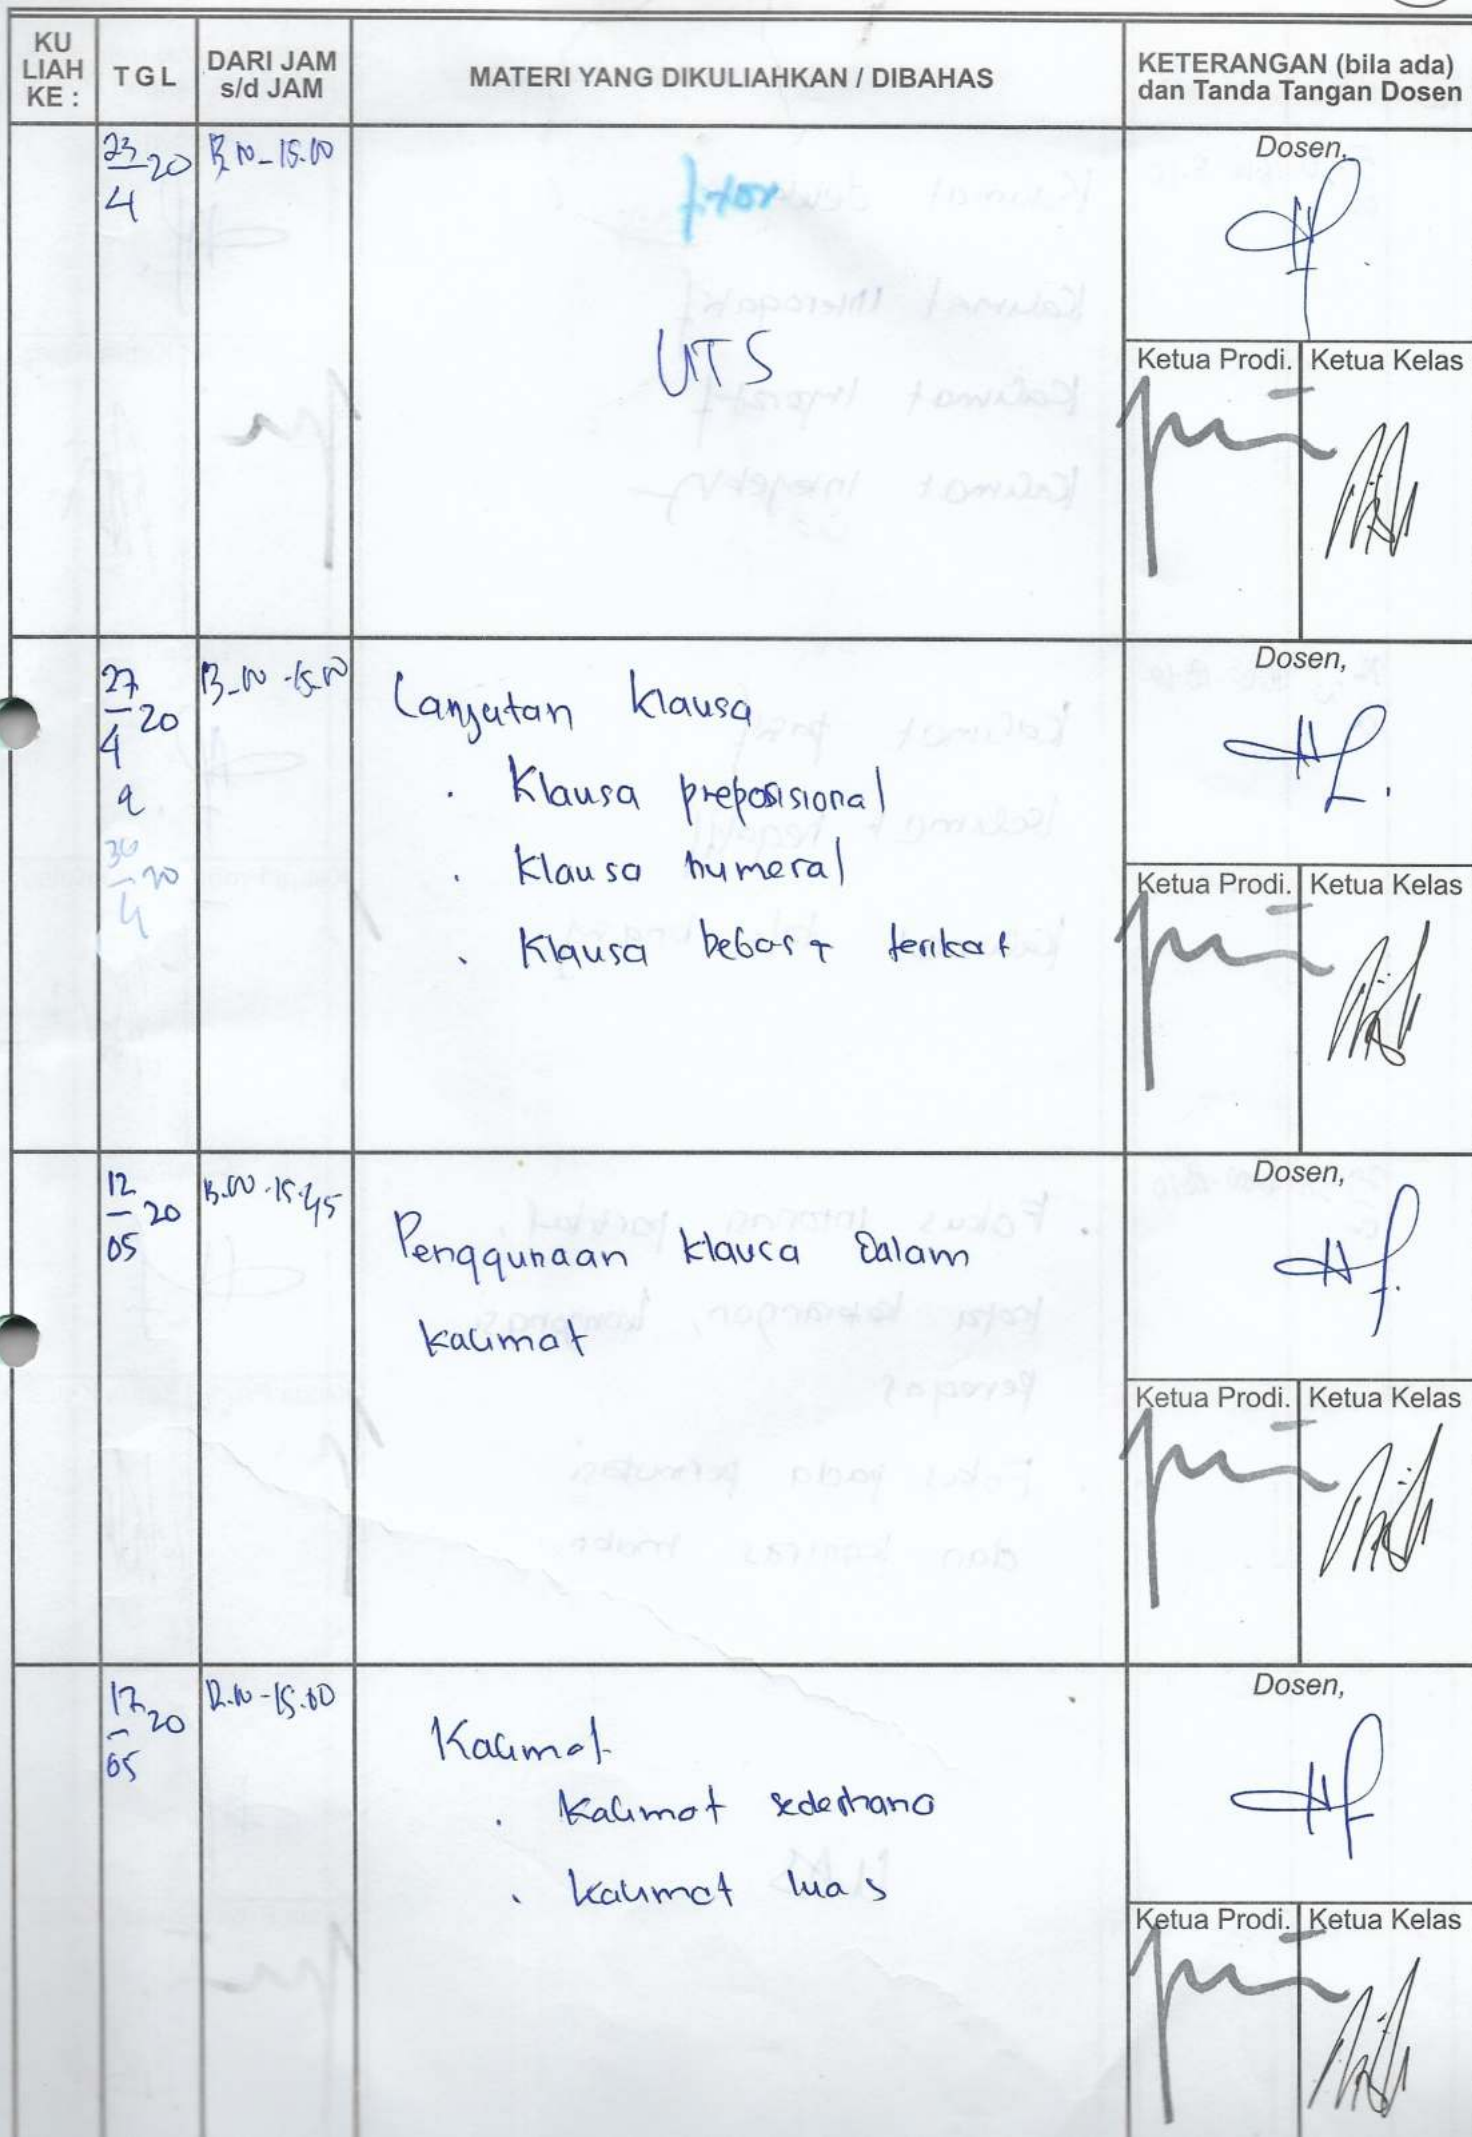 KU LIAH KE :
TGL
DARI JAM s/d JAM
MATERI YANG DIKULIAHKAN / DIBAHAS
KETERANGAN (bila ada) dan Tanda Tangan Dosen
23/4 20
UTS
Dosen,
Ketua Prodi. Ketua Kelas
27/4 20
30/4 20
Lanjutan klausa
. Klausa preposisional
. Klausa numeral
. Klausa bebas + terikat
Dosen,
Ketua Prodi. Ketua Kelas
12/05 20
13.00 - 15.45
Penggunaan klausa dalam
kalimat
Dosen,
Ketua Prodi. Ketua Kelas
05
Kalimat
. Kalimat sederhana
. Kalimat luas
Dosen,
Ketua Prodi. Ketua Kelas